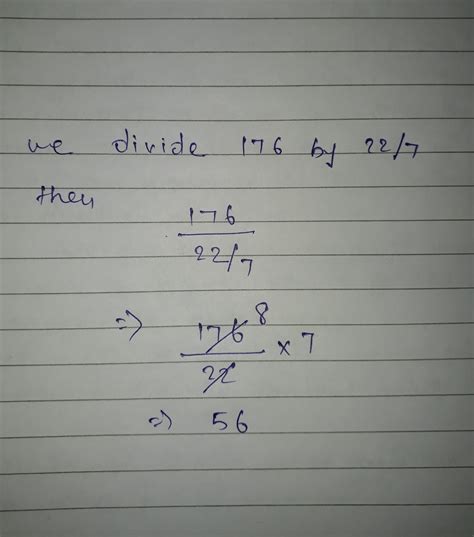 we divide 176 by 22/7
then
176
22/7
=> 176 8
22 × 7
=> 56